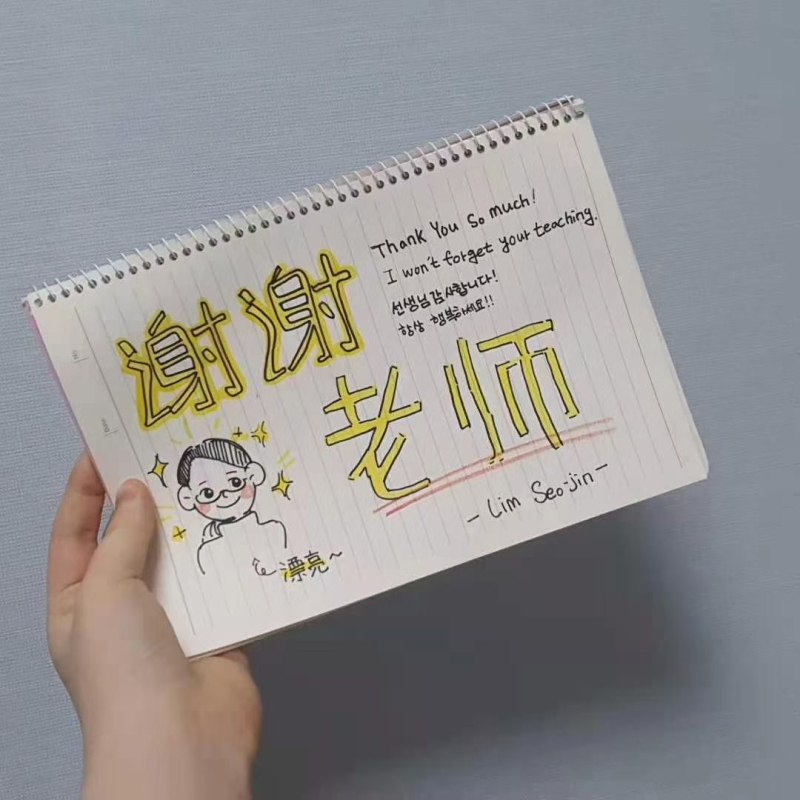 谢谢
Thank You So much!
I won't forget your teaching.
선생님감사합니다!
항상 행복하세요!!
老师
- Lim Seo-jin -
漂亮~